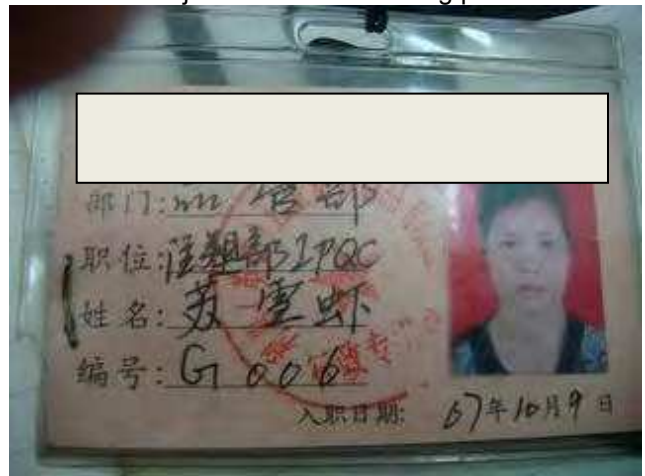 部门: 品管部
职位: 注塑部IPQC
姓名: 苏雪虾
编号: G006
入职日期: 07年10月9日